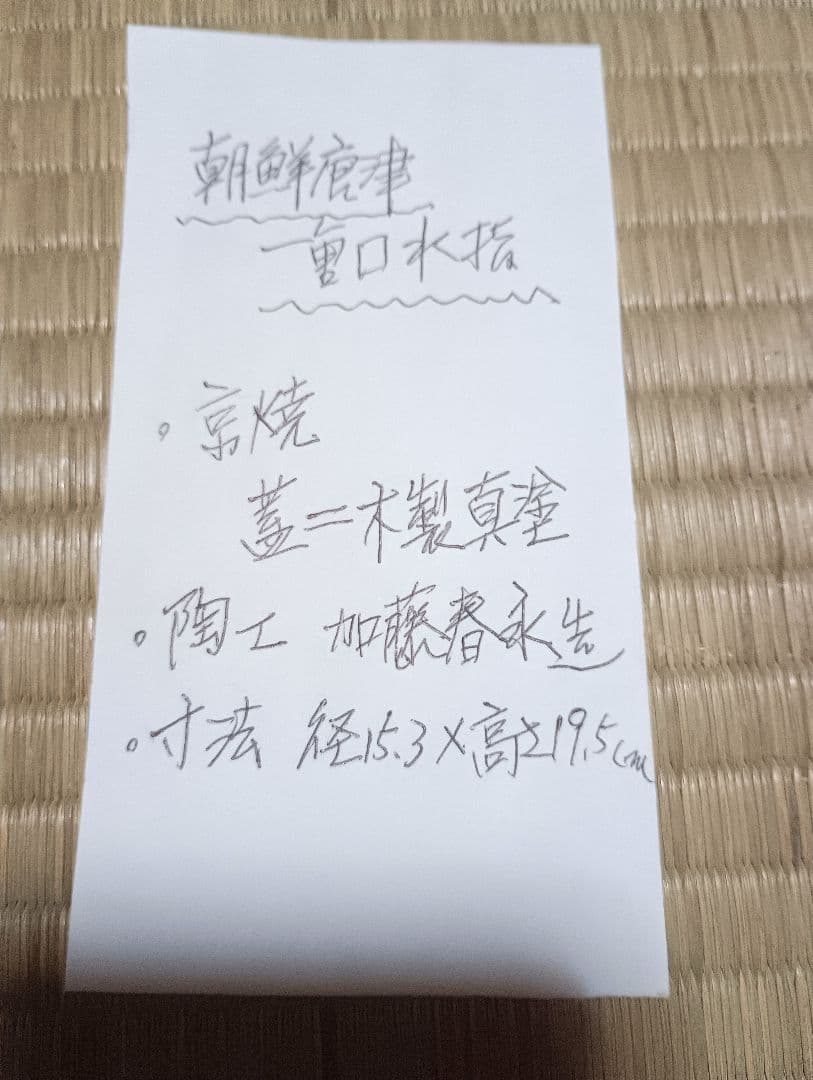 朝鮮唐津
一重口水指
。京焼
蓋=木製真塗
。陶工 加藤春永造
。寸法 径15.3×高さ19.5cm